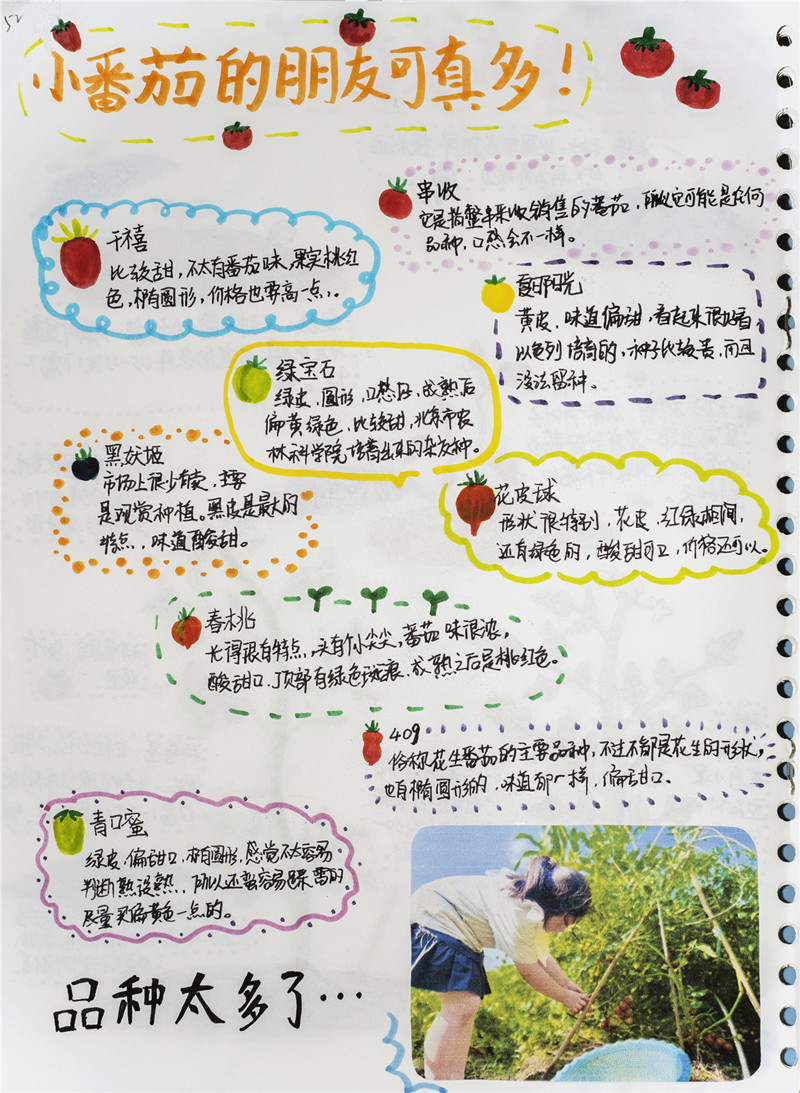 52
小番茄的朋友可真多！
串收
它是指整串采收销售的番茄，所以它可能是任何
品种，口感会不一样。
千禧
比较甜，不太有番茄味，果实桃红
色，椭圆形，价格也要高一点。
夏日阳光
黄皮，味道偏甜，看起来很好看
以色列培育的，种子比较贵，而且
没法留种。
绿宝石
绿皮，圆形，口感好，成熟后
偏黄绿色，比较甜，北京市农
林科学院培育出来的杂交种。
黑妖姬
市场上很少有卖，主要
是观赏种植。黑皮是最大的
特点，味道酸甜。
花皮球
形状很特别，花皮，红绿相间，
还有绿色的，酸甜可口，价格还可以。
春桃
长得很有特点，头有个小尖尖，番茄味很浓，
酸甜口，顶部有绿色斑痕，成熟之后是桃红色。
409
俗称花生番茄的主要品种，不过不都是花生的形状，
也有椭圆形的，味道都一样，偏甜口。
青口蜜
绿皮，偏甜口，椭圆形，感觉不太容易
判断熟没熟，所以还蛮容易踩雷的
尽量买偏黄色一点的。
品种太多了…